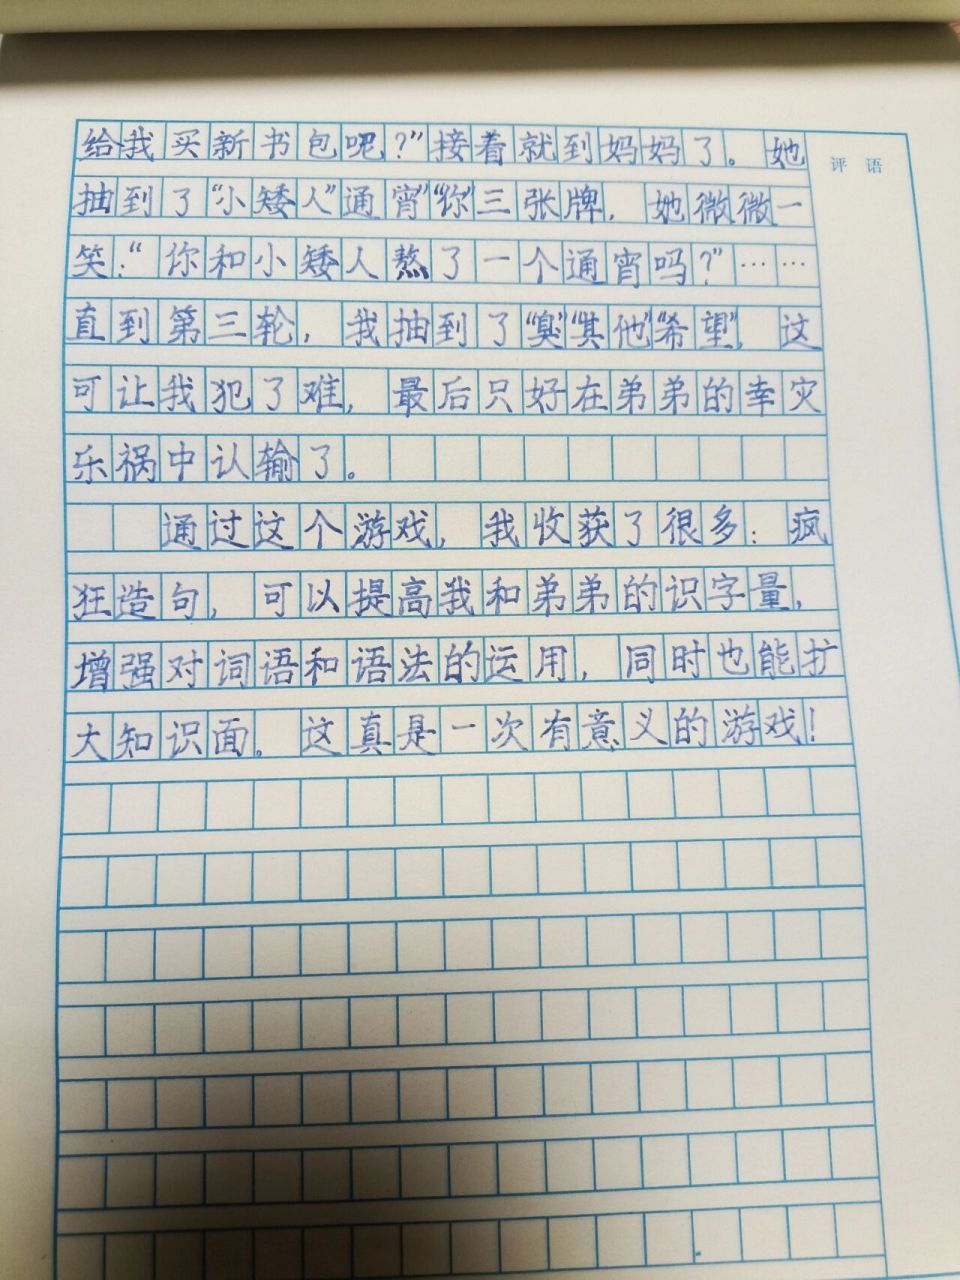 给我买新书包呢?”接着就到妈妈了。她
评语
抽到了“小矮人”“通宵”“你”三张牌,她微微一
笑:“你和小矮人熬了一个通宵吗?”……
直到第三轮,我抽到了“臭”“其他”“希望”,这
可让我犯了难,最后只好在弟弟的幸灾
乐祸中认输了。
通过这个游戏,我收获了很多:疯
狂造句,可以提高我和弟弟的识字量,
增强对词语和语法的运用,同时也能扩
大知识面。这真是一次有意义的游戏!